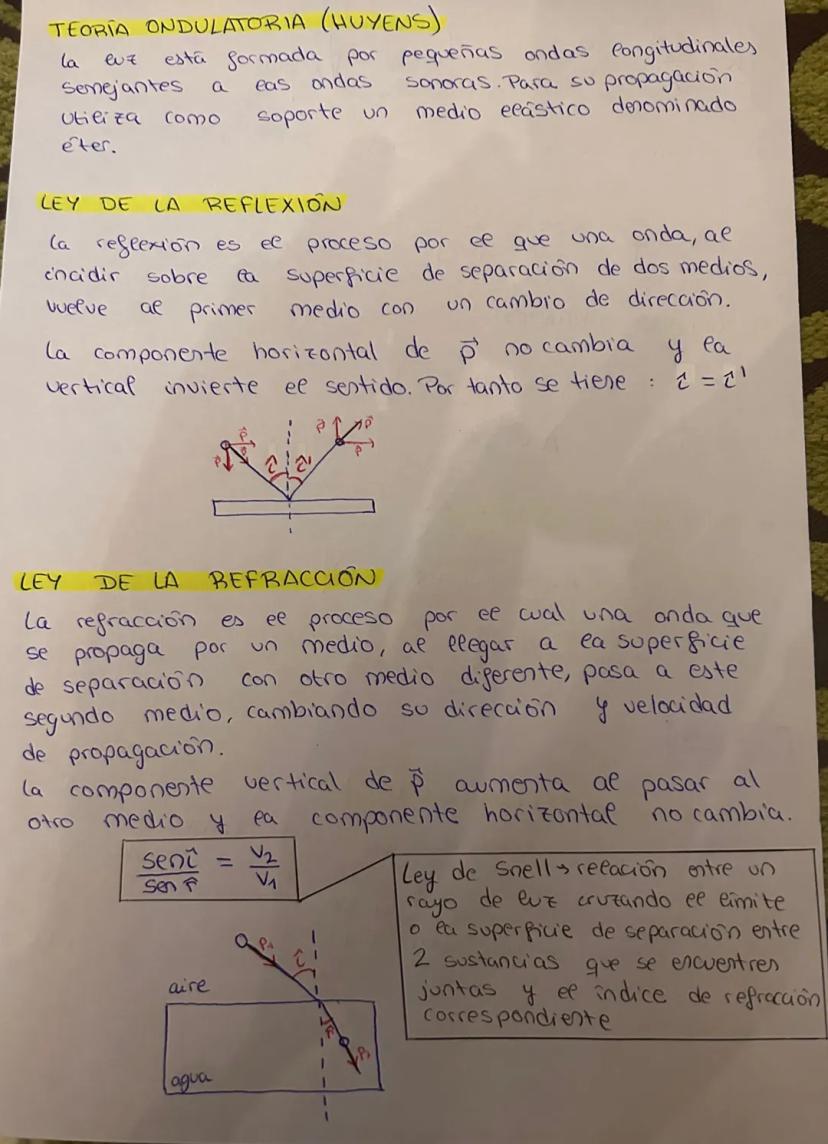 TEORÍA ONDULATORIA (HUYENS)
La luz está formada por pequeñas ondas longitudinales
semejantes a las ondas sonoras. Para su propagación
utiliza como soporte un medio elástico denominado
éter.
LEY DE LA REFLEXIÓN
La reflexión es el proceso por el que una onda, al
incidir sobre la superficie de separación de dos medios,
vuelve al primer medio con un cambio de dirección.
La componente horizontal de p⃗ no cambia y la
vertical invierte el sentido. Por tanto se tiene : î = î'
p⃗ p⃗ p⃗ p⃗
p⃗ î î' p⃗
LEY DE LA REFRACCIÓN
La refracción es el proceso por el cual una onda que
se propaga por un medio, al llegar a la superficie
de separación con otro medio diferente, pasa a este
segundo medio, cambiando su dirección y velocidad
de propagación.
La componente vertical de p⃗ aumenta al pasar al
otro medio y la componente horizontal no cambia.
sen î / sen r̂ = V2 / V1
Ley de Snell → relación entre un
rayo de luz cruzando el límite
o la superficie de separación entre
2 sustancias que se encuentren
juntas y el índice de refracción
correspondiente
p1 î
aire
r̂
agua